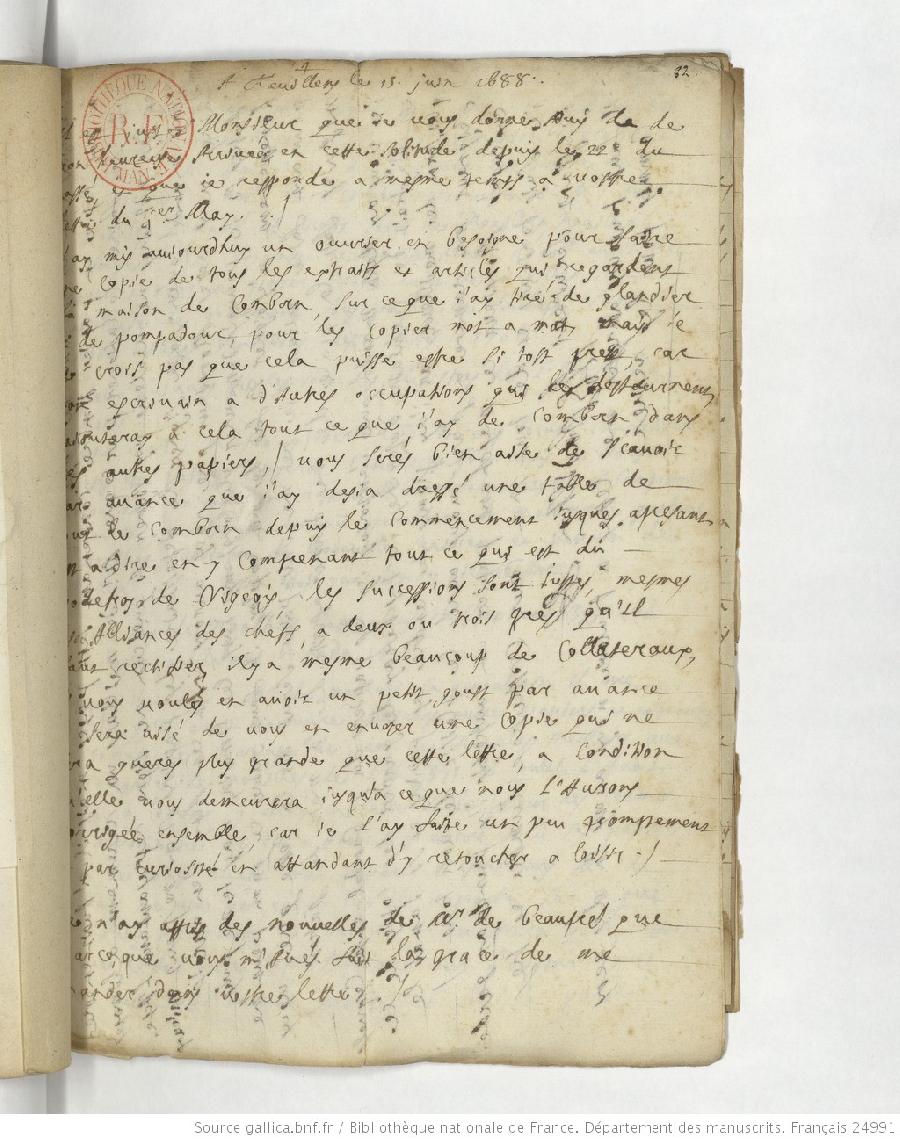 32
A Feuillens le 15. juin 1688.
Monsieur que ie vous donne Auis de
heureuse Arriuee en cette solitude depuis le 22e du
et que ie responde a mesme temps a vostre
du 1er May. /
mis aujourdhuy un ouurier en besoigne pour faire
copie de tous les extraits et articles qui regardent
maison de Comborn, sur ce que i'ay tiré de glandier
de pompadour, pour les copier mot a mot, mais ie
crois pas que cela puisse estre si tost prest, car
escriuain a d'Autres occupations qui
a cela tout ce que i'ay de Comborn dans
autres papiers, / vous serés bien aise de scauoir
auance que i'ay desia dressé une table de
de Comborn depuis le Commencement iusques apresant
a dire en y Comprenant tout ce qui est du
de Vigeois, les successions sont iustes, mesmes
Alliances des chefs, a deux ou trois pres qu'il
rectifier, il y a mesme beaucoup de Collateraux,
vous voulés en auoir un petit goust par auance
sera aisé de vous en enuoyer une Copie qui ne
guères plus grande que cette lettre, a Condition
qu'elle vous demeurera iusqu'a ce que nous l'Aurons
ensemble, car ie l'ay faite un peu promptement
par curiosité en attandant d'y retoucher a loisir. /
n'ay appris des nouvelles de Mr de beaupré que
que vous m'aués fait la grace de me
mander dans vostre lettre /
BIBLIOTHEQUE NATIONALE
R.F.
MAN.
Source gallica.bnf.fr / Bibliothèque nationale de France. Département des manuscrits. Français 24991